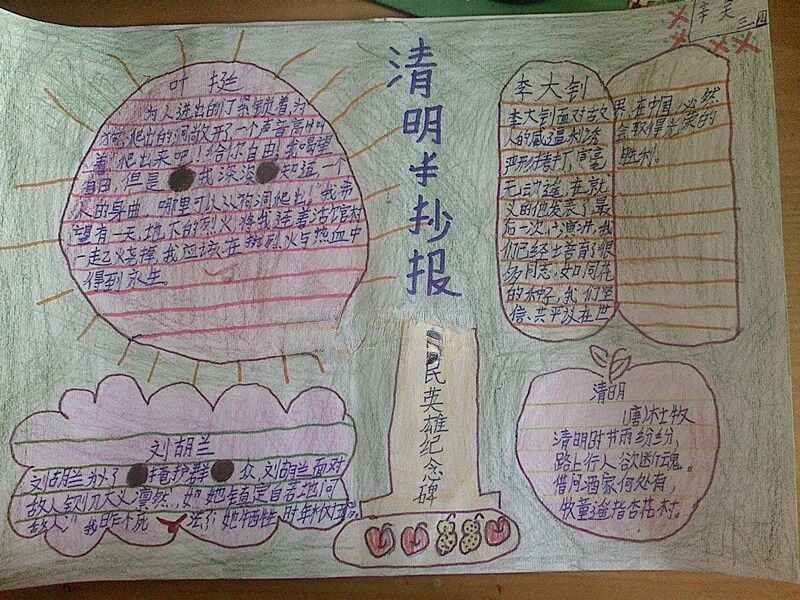 清明手抄报
叶挺
为人进出的门紧锁着,为
狗爬出的洞敞开了一个声音高叫
着,爬出来吧!给你自由,我渴望
自由,但是我深深知道,一个
人的身曲,哪里可以从狗洞爬出!我希
望有一天,地下的烈火,将我连着活棺材
一起烧掉,我应该在烈火与热血中
得到永生
李大钊
李大钊面对古敌
人的威逼利诱
严形拷打,
义的他发表了最
后一次演讲,我
们已经培育了很
多同志,如同花
的种子,我们坚
信,共
界,在中国,必然
会取得光荣的
胜利。
刘胡兰
刘胡兰为了掩护群众,刘胡兰面对
敌人铡刀大义凛然,她镇定自若地问
敌人"我咋个死法?她牺牲时年
民英雄纪念碑
清明
(唐)杜牧
清明时节雨纷纷、
路上行人欲断魂。
借问酒家何处有,
牧童遥指杏花村。
三.四